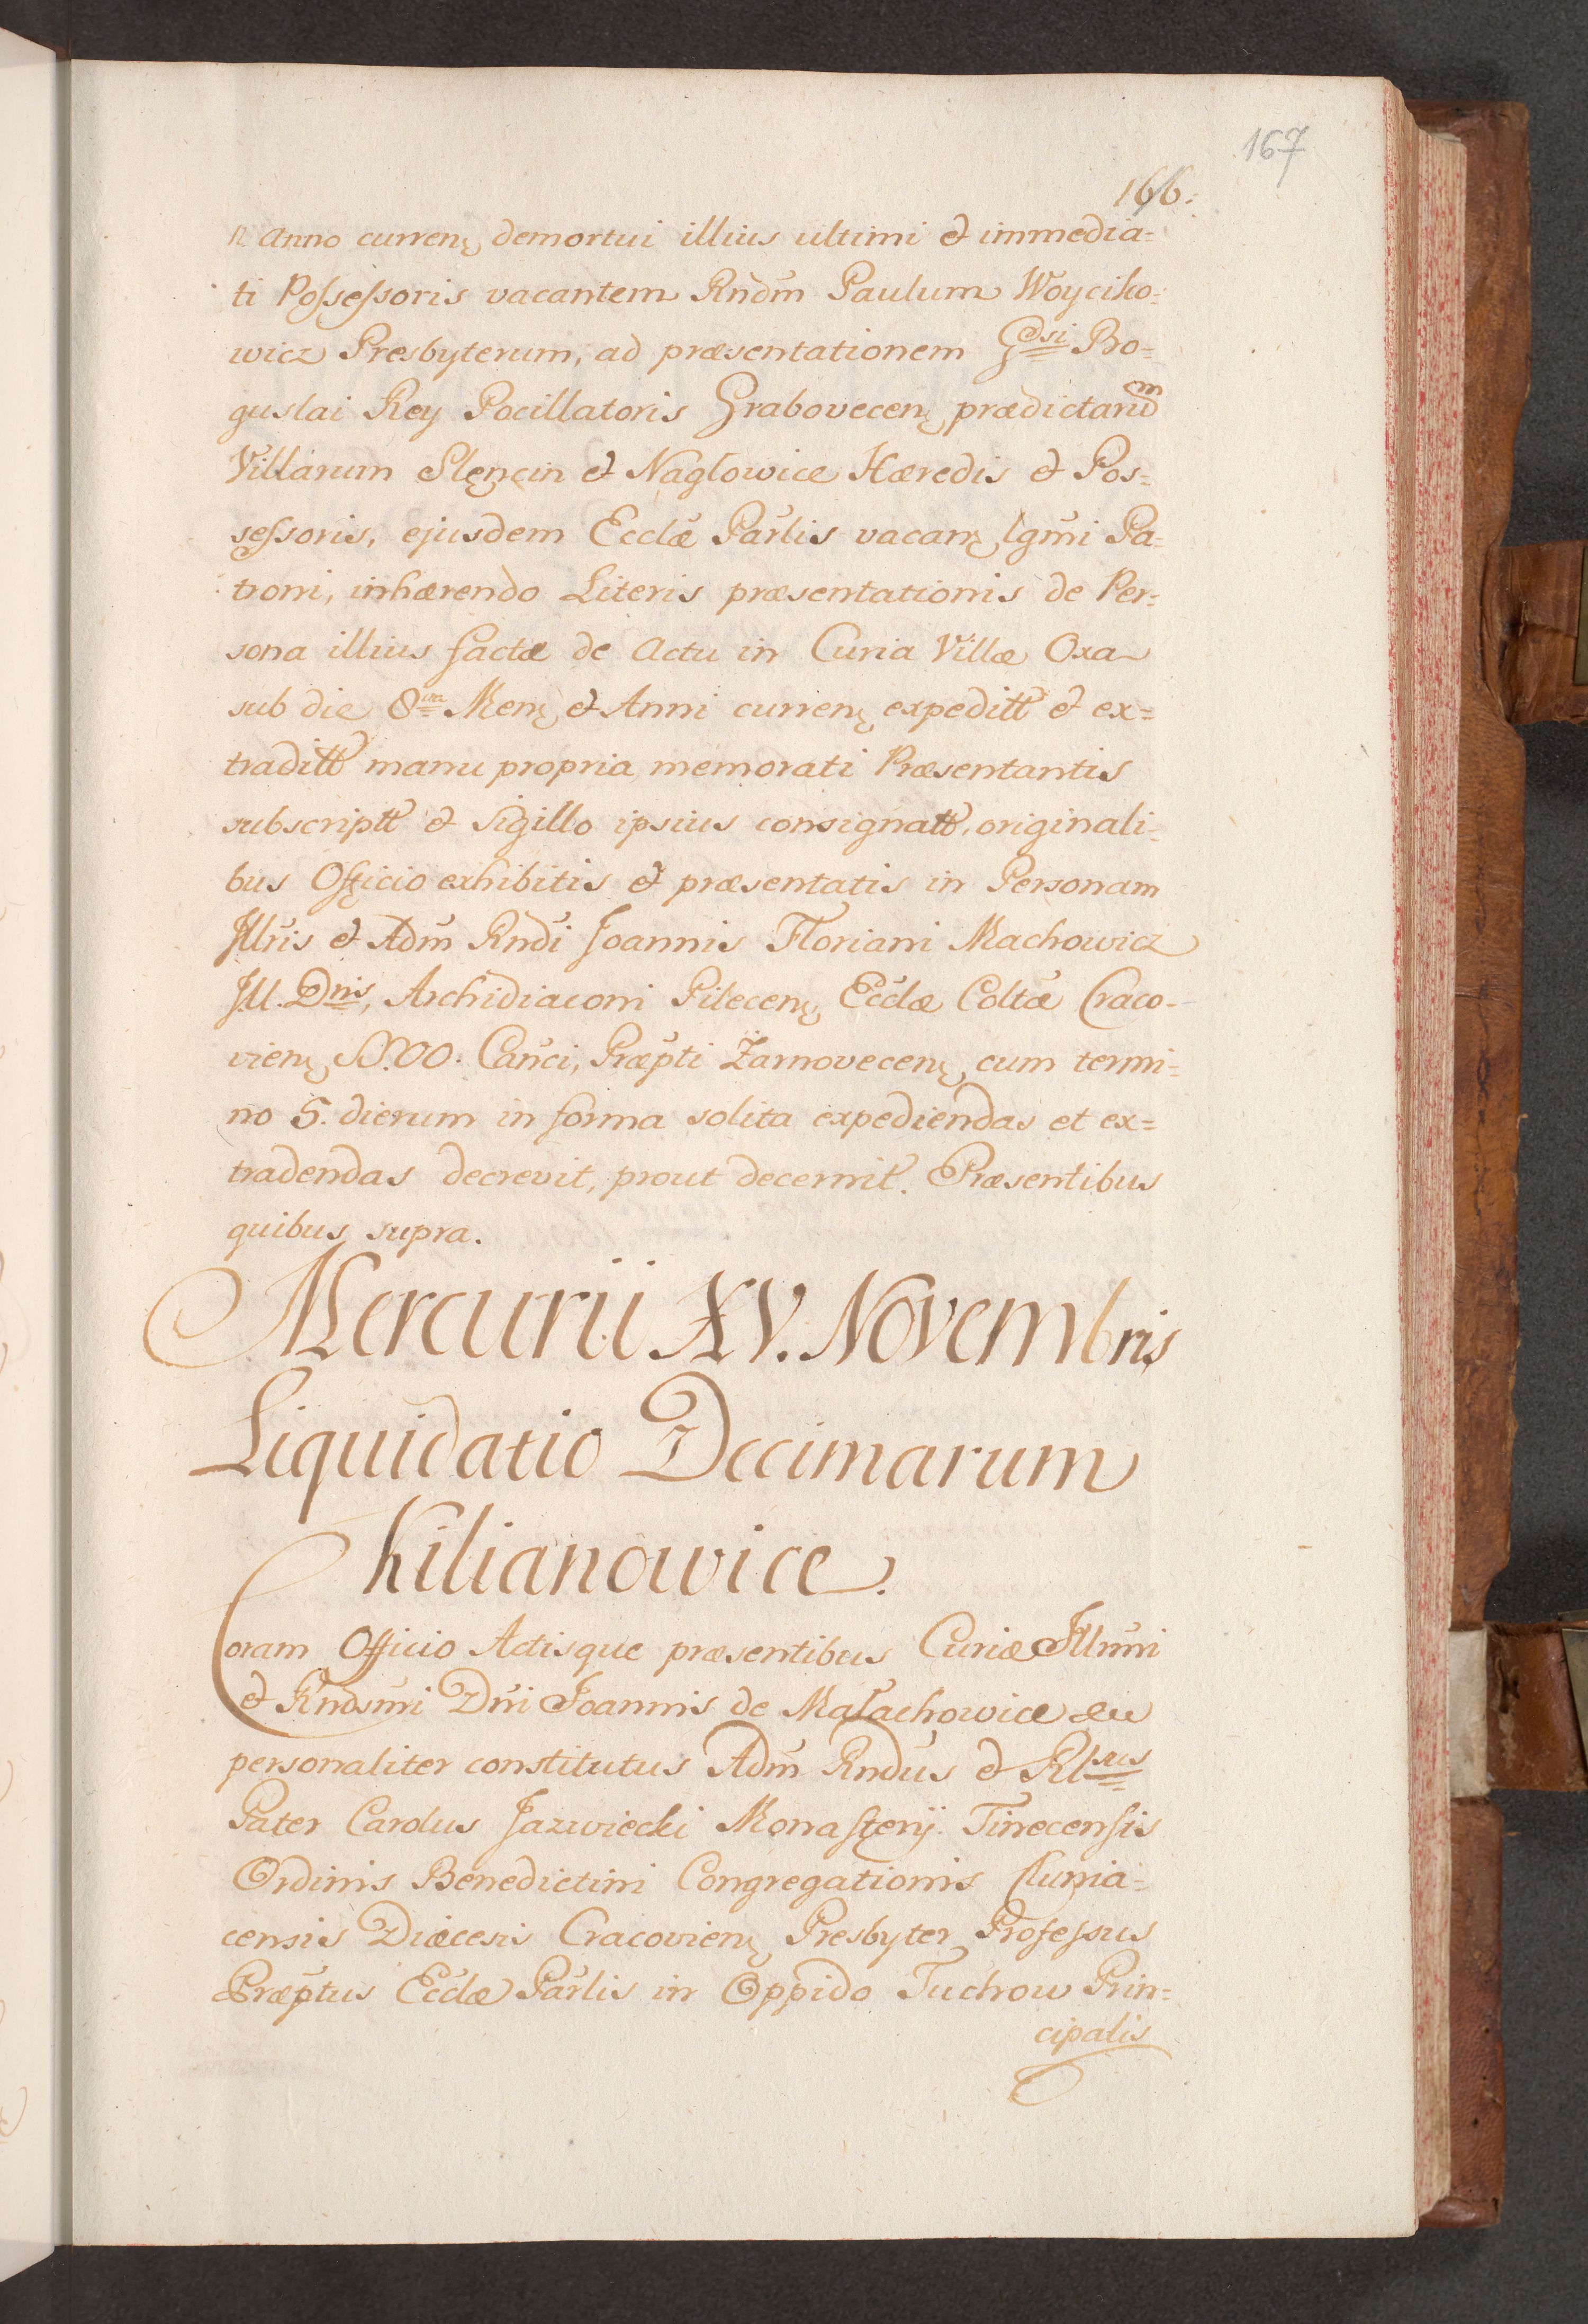 167
166.
n Anno currenę demortui illius ultimi et immedia=
ti Possessoris vacantem Rndm̃ Paulum Woyciko=
wicz Presbyterum, ad præsentationem Gdsi Bo=
guslai Rey Pocillatoris Grabovecenę prædictarum
Villarum Slęncin et Naglowice Hæredis et Pos=
sessoris, ejusdem Ecclæ Parlis vacanę lgmi Pa=
troni, inhærendo Literis præsentationis de Per=
sona illius factæ de Actu in Curia Villæ Oxa
sub die 8va Menę et Anni currenę expeditt et ex=
traditt manu propria memorati Præsentantis
subscriptt et Sigillo ipsius consignatt, originali=
bus Officio exhibitis et præsentatis in Personam
Jllris et Adm Rndi Joannis Floriani Machowicz
JU. Dris, Archidiaconi Pilecenę, Ecclæ Coltæ Craco-
vienę OO. Canci, Præpti Zarnovecenę cum termi=
no 5. dierum in forma solita expediendas et ex=
tradendas decrevit, prout decernit. Præsentibus
quibus supra.
Mercurii XV. Novembris
Liquidatio Decimarum
Kilianowice.
Coram Officio Actisque præsentibus Curiæ Jllmi
et Rndsmi Dni Joannis de Małachowice etc
personaliter constitutus Adm Rndus et Rlsus
Pater Carolus Jazwiecki Monasterij Tinecensis
Ordinis Benedictini Congregationis Clunia=
censis Diæcesis Cracovienę Presbyter Professus
Præptus Ecclæ Parlis in Oppido Tuchow Prin=
cipalis